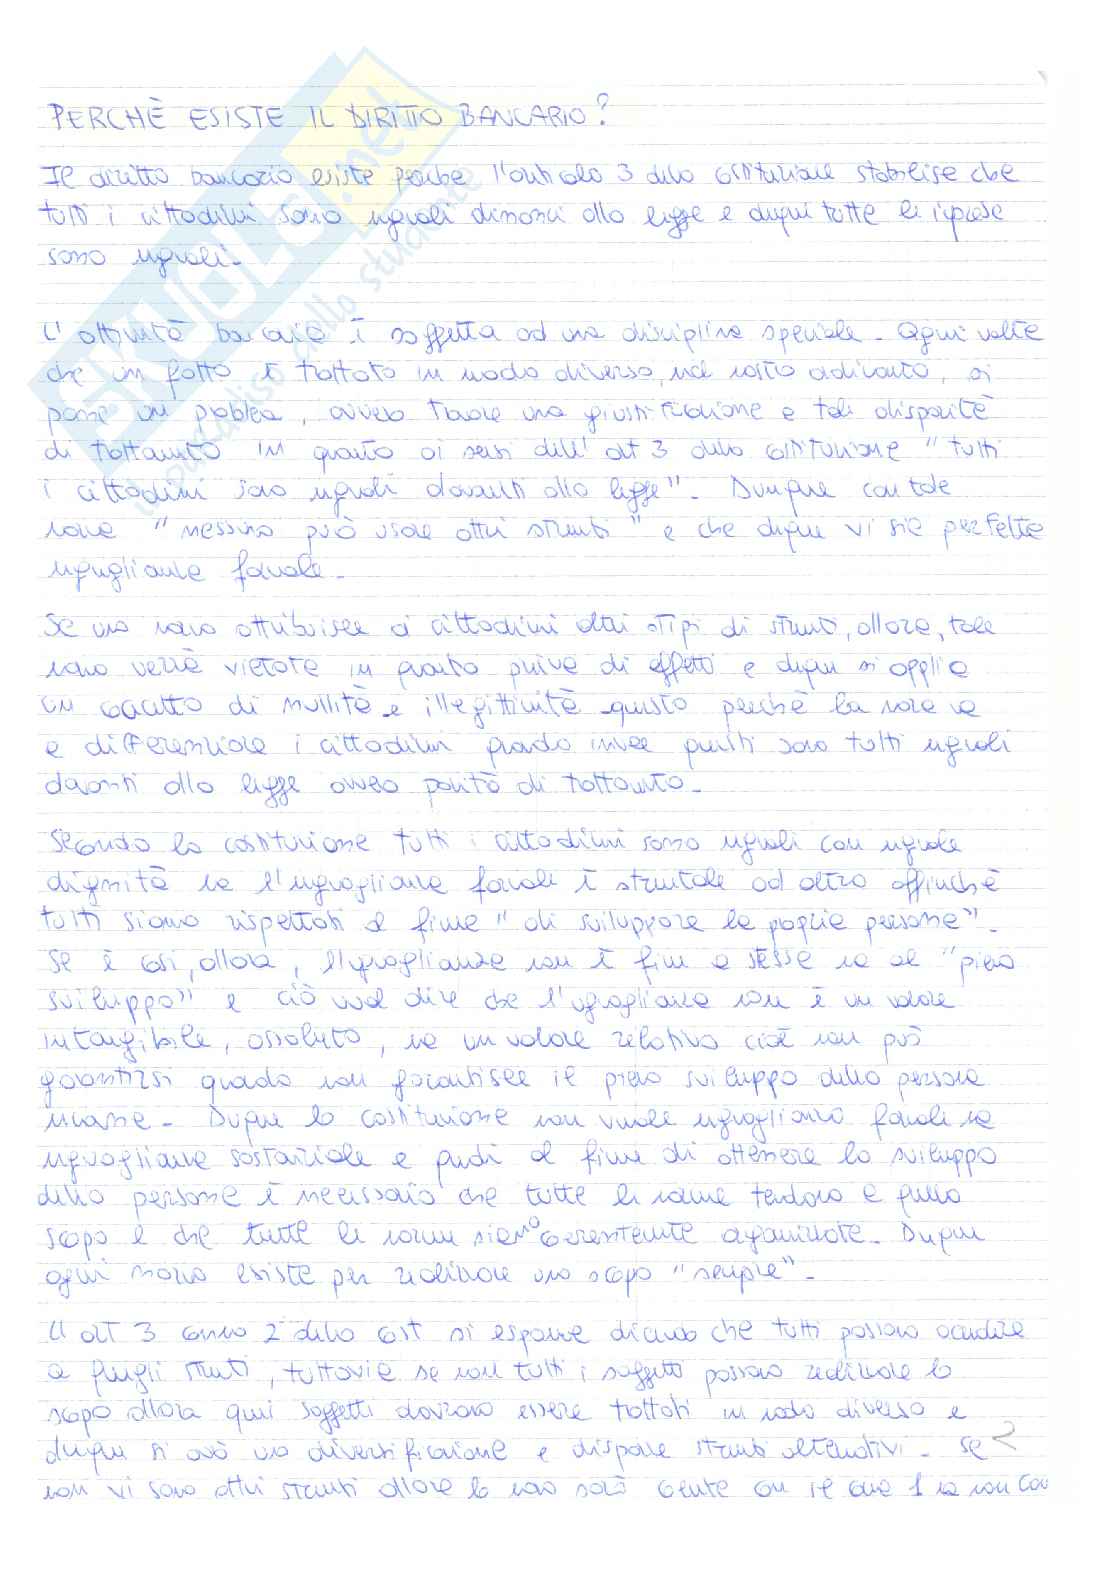 PERCHÈ ESISTE IL DIRITTO BANCARIO?
Il diritto bancario esiste perché l'articolo 3 della costituzione stabilisce che
tutti i cittadini sono uguali dinanzi alla legge e dunque tutte le imprese
sono uguali.
L'attività bancaria è soggetta ad una disciplina speciale. Ogni volta
che un fatto è trattato in modo diverso, nel nostro ordinamento, si
pone un problema, ovvero trovare una giustificazione a tale disparità
di trattamento in quanto ai sensi dell'art 3 della costituzione "tutti
i cittadini sono uguali davanti alla legge". Dunque con tale
norma "nessuno può usare altri strumenti" e che dunque vi sia perfetta
uguaglianza formale.
Se una norma attribuisce ai cittadini altri tipi di strumenti, allora, tale
norma verrà vietata in quanto priva di effetti e dunque si applica
un concetto di nullità e illegittimità questo perché la norma va
a differenziare i cittadini quando invece questi sono tutti uguali
davanti alla legge ovvero parità di trattamento.
Secondo la costituzione tutti i cittadini sono uguali con uguale
dignità ma l'uguaglianza formale è strumentale ad altro affinché
tutti siano rispettati al fine "di sviluppare la propria persona".
Se è così, allora, l'uguaglianza non è fine a stessa ma al "pieno
sviluppo" e ciò vuol dire che l'uguaglianza non è un valore
intangibile, assoluto, ma un valore relativo cioè non può
garantirsi quando non garantisce il pieno sviluppo della persona
umana. Dunque la costituzione non vuole uguaglianza formale ma
uguaglianza sostanziale e quindi al fine di ottenere lo sviluppo
della persona è necessario che tutte le norme tendano a quello
scopo e che tutte le norme siano coerentemente organizzate. Dunque
ogni norma esiste per realizzare uno scopo "sempre".
L'art 3 comma 2 della cost si espone dicendo che tutti possono accedere
a quegli strumenti, tuttavia se non tutti i soggetti possono realizzare lo
scopo allora quei soggetti dovranno essere trattati in modo diverso e
dunque si avrà una diversificazione e disporre strumenti alternativi. Se
non vi sono altri strumenti allora la norma sarà coerente con il comma 1 ma non con
2
SKUOLA.net
il paradiso dello studente